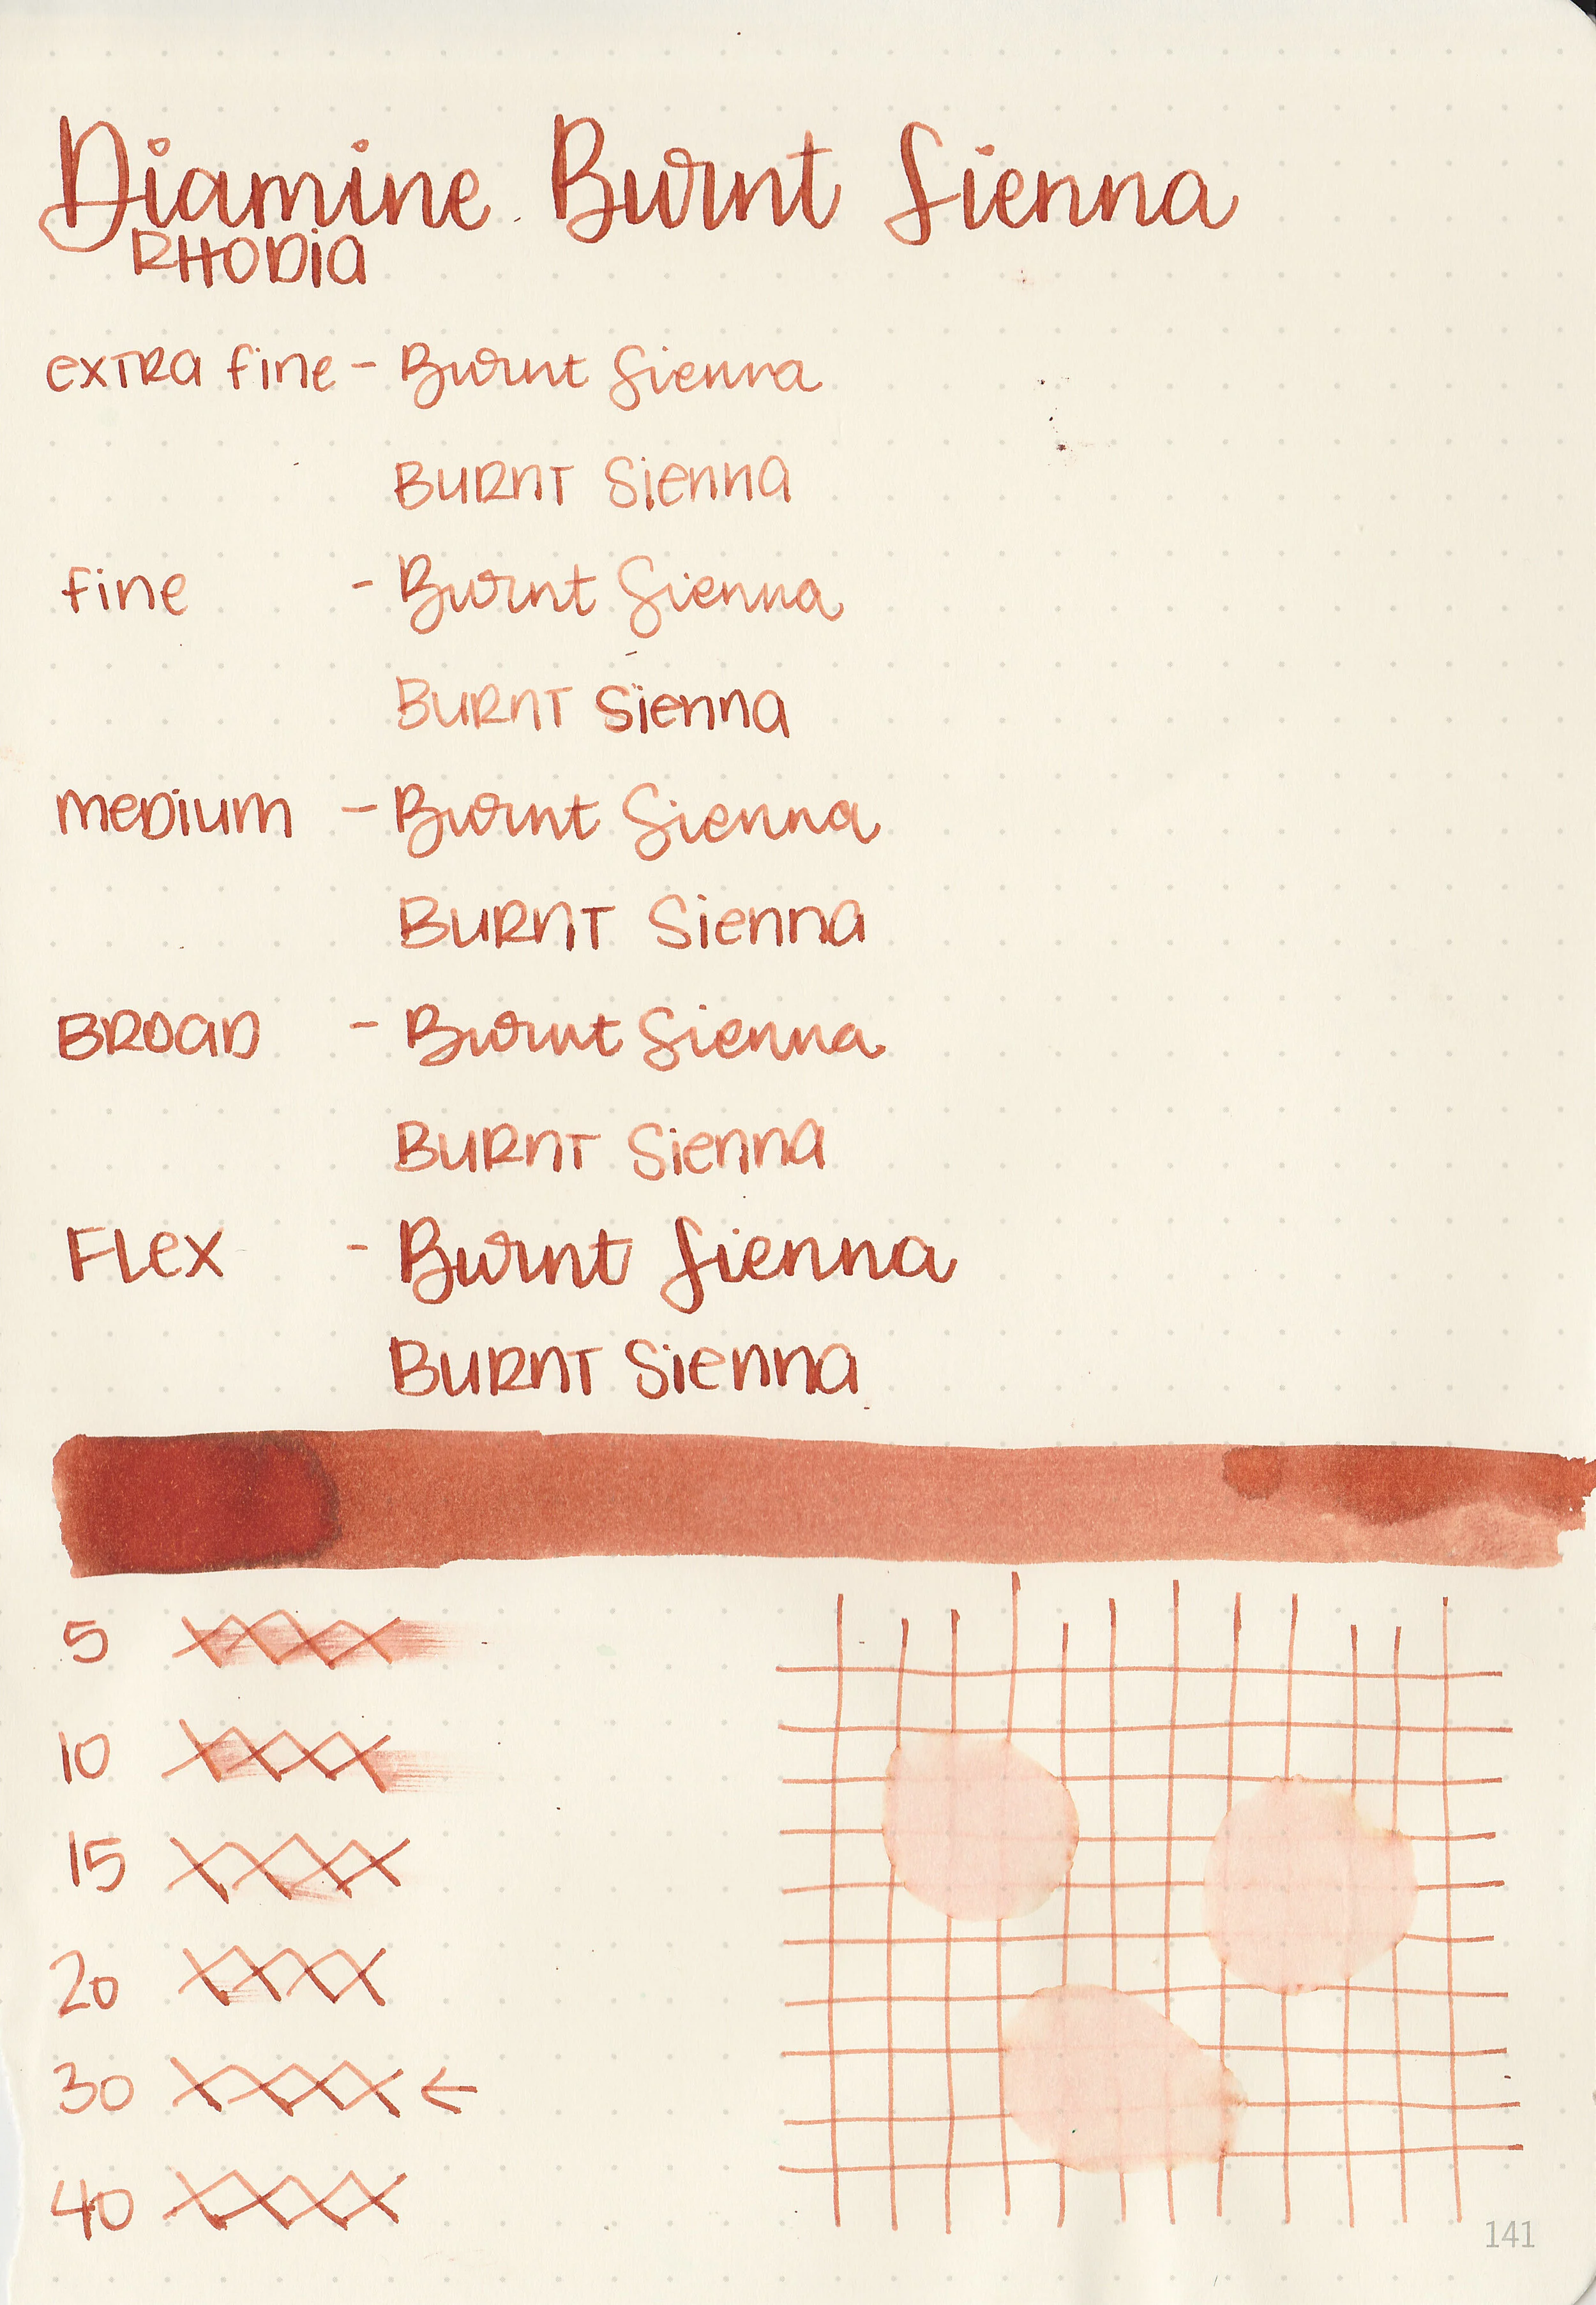 Diamine Burnt Sienna
RHODIA
extra fine - Burnt Sienna
BURNT Sienna
fine - Burnt Sienna
BURNT Sienna
medium - Burnt Sienna
BURNT Sienna
BROAD - Burnt Sienna
BURNT Sienna
Flex - Burnt Sienna
BURNT Sienna
5
10
15
20
30 ←
40
141